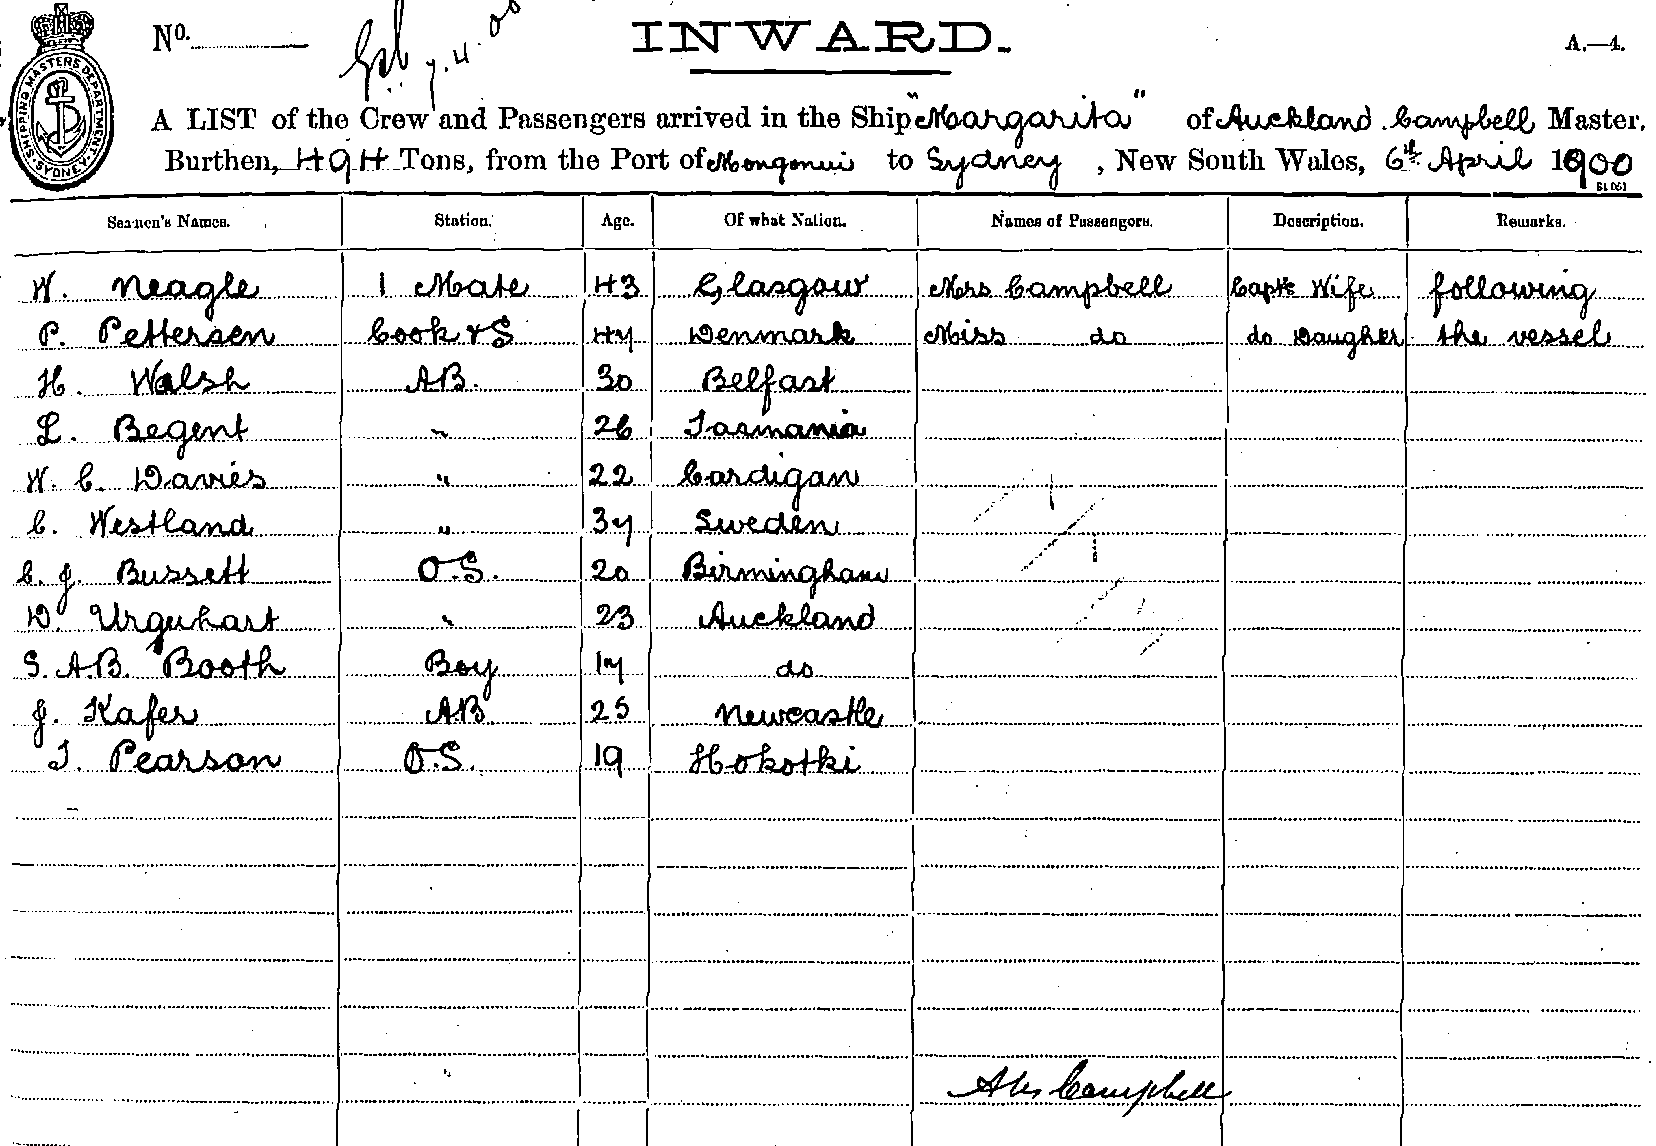 No.
7.4.00
INWARD.
A.—4.
SHIPPING MASTERS DEPARTMENT SYDNEY
A LIST of the Crew and Passengers arrived in the Ship "Margarita" of Auckland Campbell Master,
Burthen, 494 Tons, from the Port of Mongonui to Sydney, New South Wales, 6th April 1900
Seamen's Names. Station. Age. Of what Nation. Names of Passengers. Description. Remarks.
W. Neagle 1 Mate 43 Glasgow Mrs Campbell Capts Wife following
P. Pettersen Cook & S 47 Denmark Miss do do Daugher the vessel
H. Walsh AB. 30 Belfast
L. Begent " 26 Tasmania
W. C. Davies " 22 Cardigan
C. Westland " 37 Sweden
C. J. Bussett O.S. 20 Birmingham
D. Urquhart " 23 Auckland
S. A.B. Booth Boy 17 do
J. Kafer AB 25 Newcastle
T. Pearson O.S. 19 Hokotki
Alex Campbell